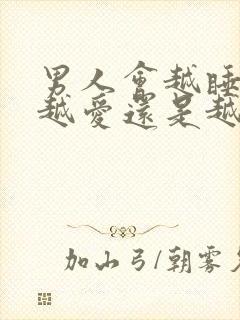 男人會越睡
越愛還是越
加山弓/朝雾